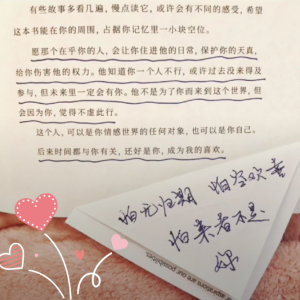 有些故事多看几遍，慢点读它，或许会有不同的感受，希望
这本书能在你的周围，占据你记忆里一小块空位。
愿那个在乎你的人，会让你住进他的日常，保护你的天真，
给你伤害他的权力。他知道你一个人不行，或许过去没来得及
参与，但未来里一定会有你。他不是为了你而来到这个世界，但
会因为你，觉得不虚此行。
这个人，可以是你情感世界的任何对象，也可以是你自己。
后来时间都与你有关，还好是你，成为我的喜欢。
怕无归期 怕空欢喜
怕来者不是
你